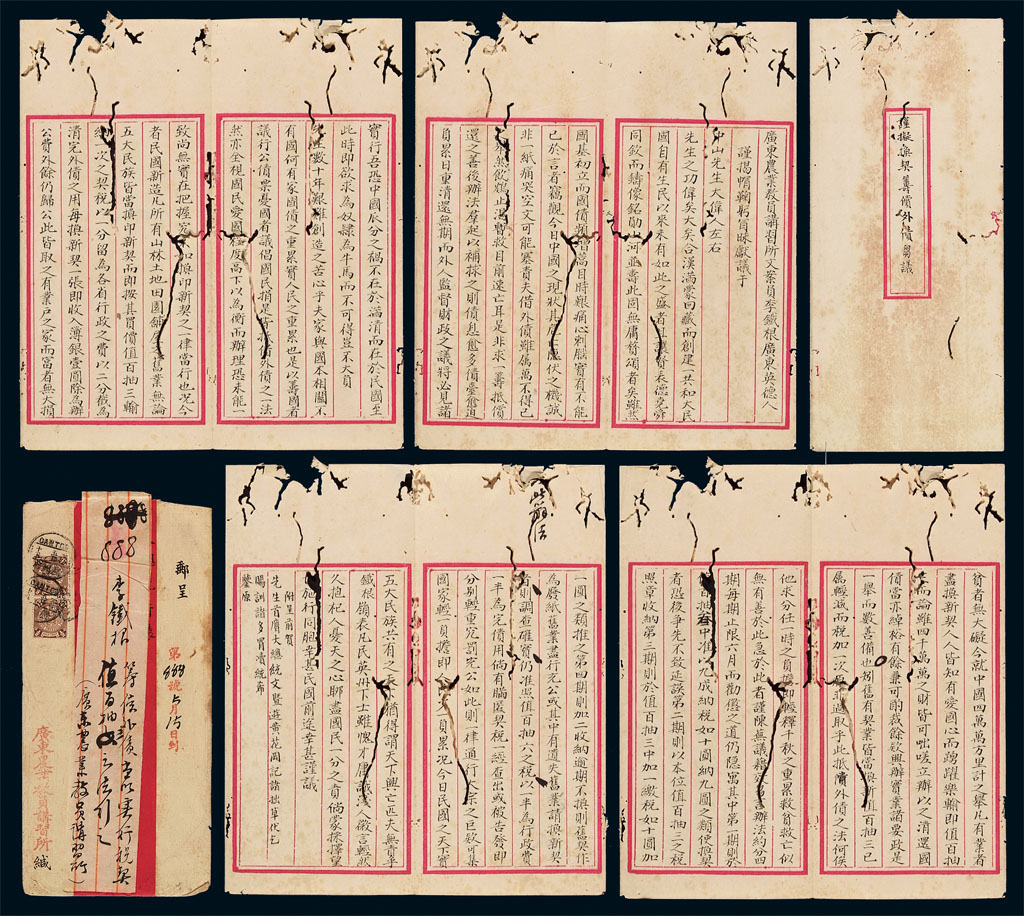 謹擬換契籌償外債芻議
廣東農業教員講習所文案員李鐵根廣東英德人
謹揭帽鞠躬冒昧獻議于
中山先生大偉人左右
先生之功偉矣大矣合漢滿蒙回藏而創建一共和大民
國自有生民以來未有如此之盛者 讓贊表德堯舜
同欽而鑄像銘勛山河並壽此固無庸贅頌者矣雖然
國基初立而國債頻增蒿目時艱痛心刺骨實有不能
已於言者竊觀今日中國之現狀其危 伏之機誠
非一紙痛哭空文可能塞責夫借外債雖屬萬不得已
然飲鴆止渴暫救目前遠亡耳是非求一籌抵償
還之善後辦法羣起以補救之則債息愈多債臺愈迫
負累日重清還無期而外人監督財政之議將必見諸
實行吾恐中國瓜分之禍不在於滿清而在於民國至
此時即欲求為奴隸為牛馬而不可得豈不大負
數十年艱難創造之苦心乎夫家與國本相關不
有國何有家國債之重累實人民之重累也是以籌國者
議行公債票憂國者議倡國民捐是皆抵借外債之一法
然亦全視國民愛國程度高下以為衡而辦理恐未能一
致尚無實在把握究不如換印新契之一律當行也況今
者民國新造凡所有山林土地田園鋪屋之舊業無論
五大民族皆當換印新契而即按其買價值百抽三輸
納一次之契稅以一分留為各省行政之費以二分儎為
清完外債之用每換新契一張即收入薄銀壹圓除為辦
公費外餘仍歸公此皆取之有業戶之家而富者無大損
貧者無大礙今就中國四萬萬方里計之舉凡有業者
盡換新契人人皆知有愛國心而踴躍樂輸即值百抽
三而論雖四千萬萬之財皆可咄嗟立辦以之清還國
債當亦綽裕有餘兼可酌裁餘欵興辦實業諸要政是
一舉而數善備也矧舊有契業皆當換新值百抽三已
屬輕減而稅加一次原非過取乎此抵償外債之法何俟
他求分任一時之負擔即帳釋千秋之重累救貧救亡似
無有善於此急於此者謹陳蕘議藉 辦法約分四
期每期止限六月而勸懲之道仍隱寓其中第一期則於
值百抽叁中准以九成納稅如十圓納九圓之類使換契
者恐後爭先不致延誤第二期則以本位值百抽三之稅
照章收納第三期則於值百抽三中加一繳稅如十圓加
一圓之類推之第四期則加二收納逾期不換則舊契作
為廢紙舊業盡行充公或其中有遺失舊業請換新契
者則調查確實仍准照值百抽六之稅以一半為行政費
一半為完償用倘有瞞匿契稅一經查出或被告發即
分別輕重究罰充公如此則一律通行大宗之巨欵可集
國家輕一負擔即人民少一負累況今日民國之天下實
五大民族共有之天下猶得謂天下興亡匹夫無責乎
鐵根嶺表凡民英州下士雖愧才庸識淺人微言輕然
久抱杞人憂天之心聊盡國民一分之責倘蒙採擇重
施行同胞幸甚民國前途幸甚謹議
附呈前賀
先生首膺大總統文暨遊黃花岡記諸拙草伏乞
賜訓諸多冒瀆統希
鑒原
郵呈
第888號5月15日到
廣東農業教員講習所緘
888
李鐵根
籌償外債當以實行稅契
值百抽 之法引之
(廣東農業教員講習所)
CANTON